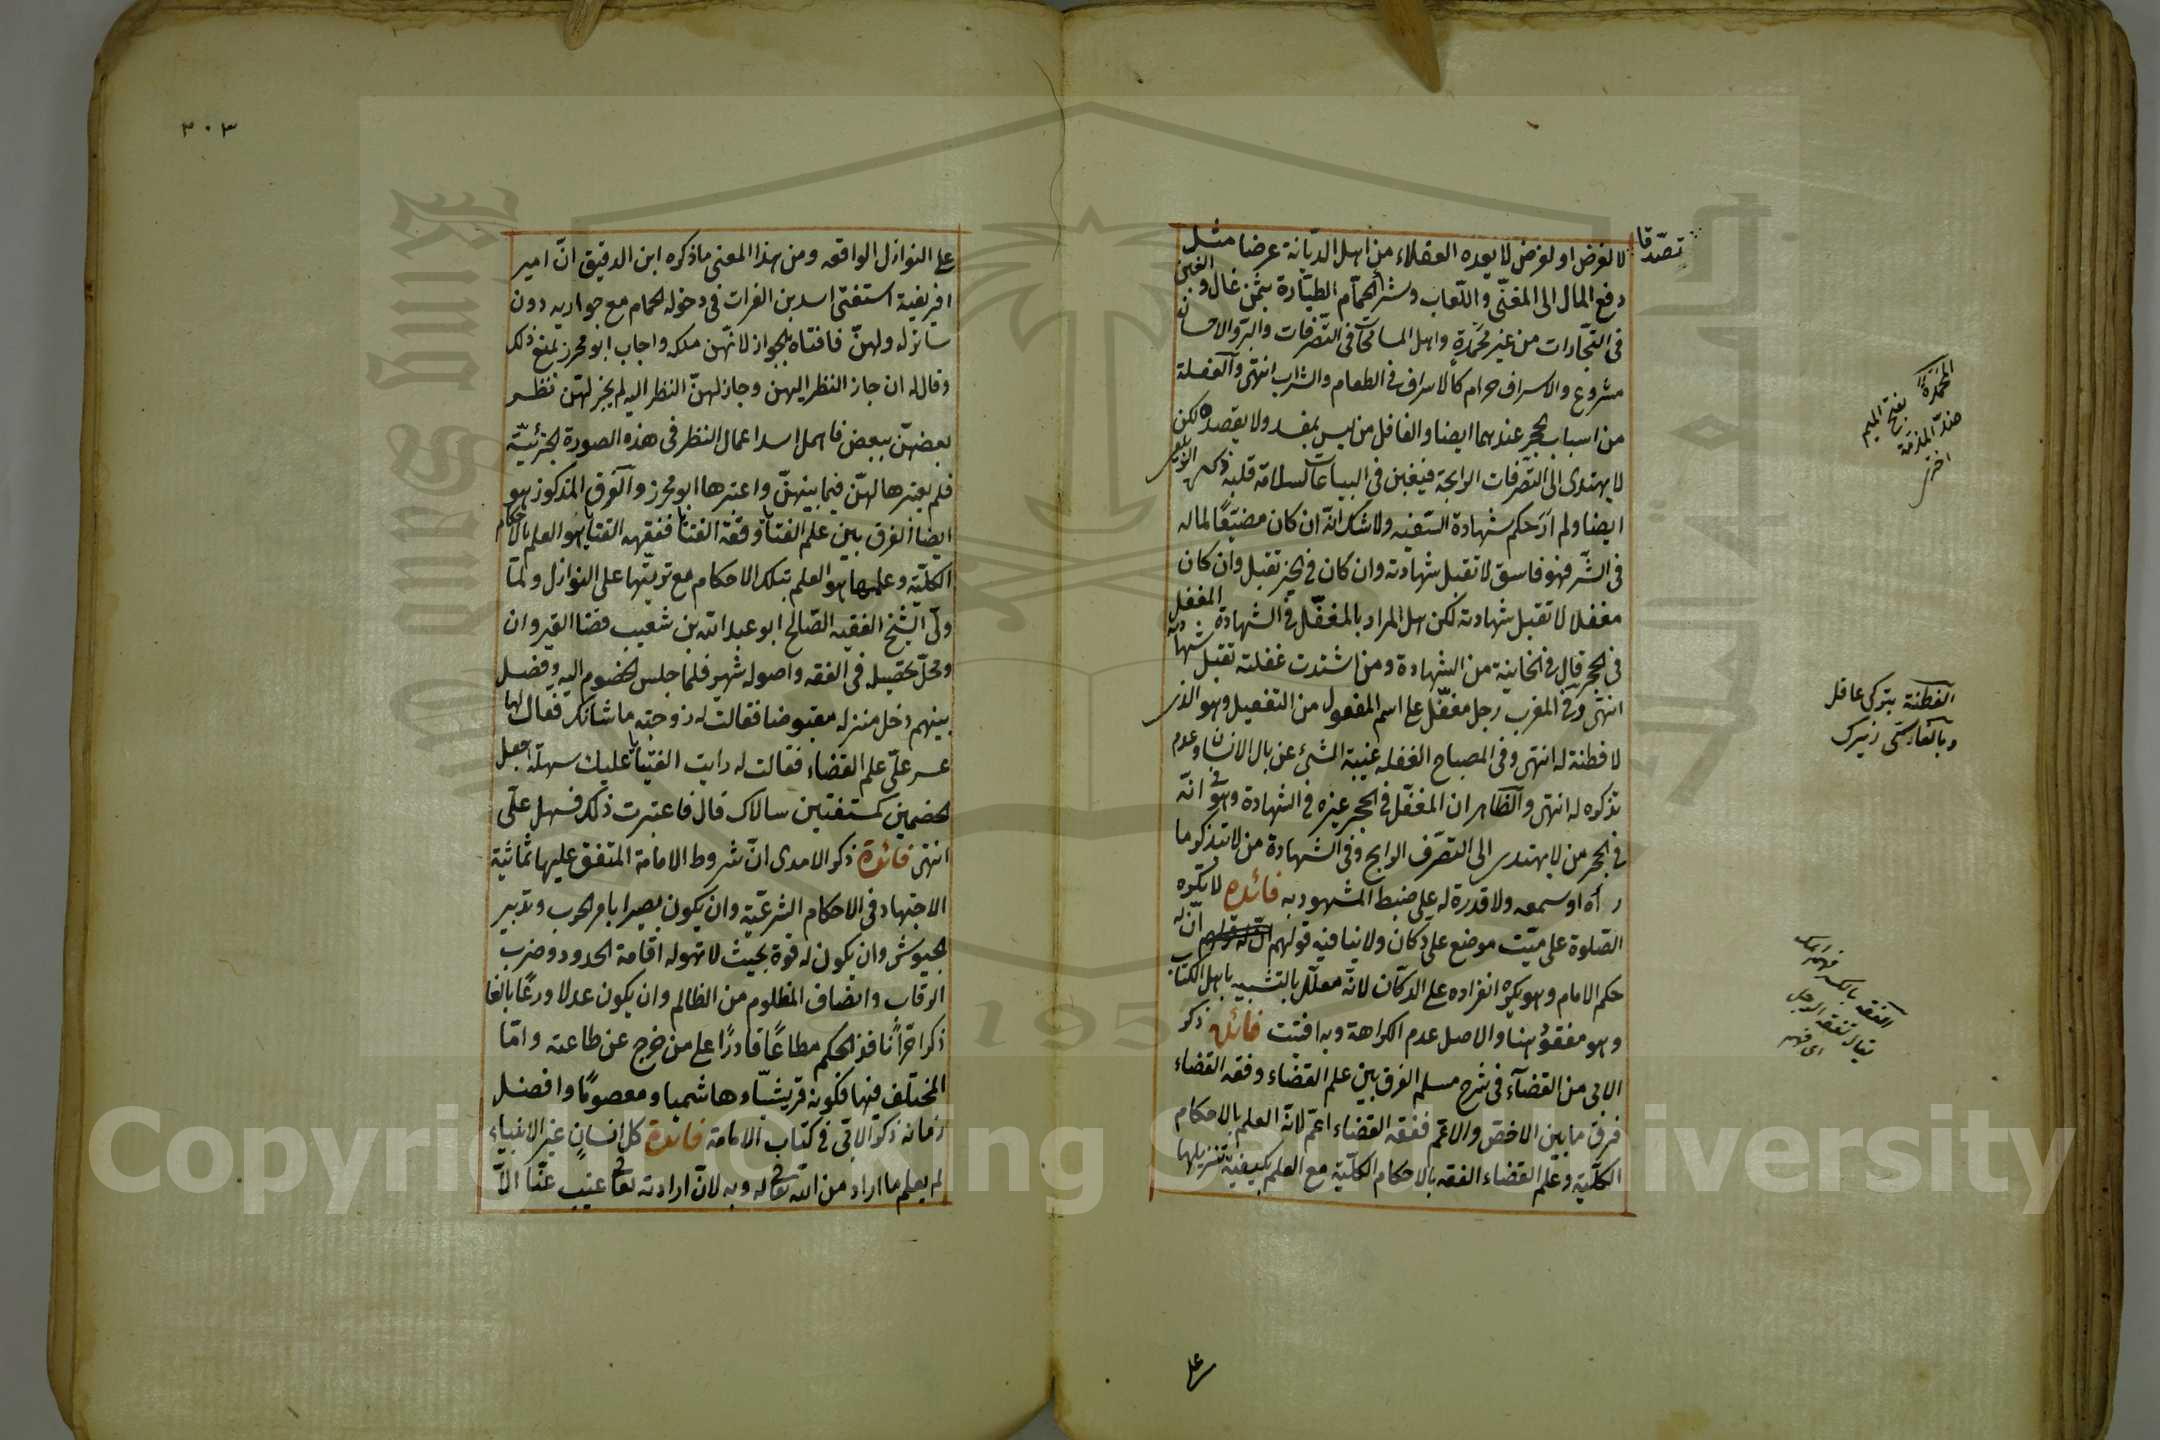 تصدقا
لا لغرض او لغرض لا يعده العقلاء من اهل الديانة غرضا مثل
دفع المال الى المغنى واللعاب وشراء الحمام الطيارة بثمن غال والغبن
فى التجارات من غير محمدة واهل المسامحات فى التصرفات والبر والاحسان
مشروع والاسراف حرام كالاسراف فى الطعام والشراب انتهى والغفلة
من اسباب الحجر عندهما ايضا والغافل من ليس بمفسد ولا يقصده لكن
لا يهتدى الى التصرفات الرابحة فيغبن فى البياعات لسلامة قلبه ذكره الزيلعى
ايضا ولم ار حكم شهادة السفيه ولا شك انه ان كان مضيعا لماله
فى الشر فهو فاسق لا تقبل شهادته وان كان فى الخير تقبل وان كان
مغفلا لا تقبل شهادته لكن هل المراد بالمغفل فى الشهادة المغفل
فى الحجر قال فى الخانية من الشهادة ومن اشتدت غفلته تقبل شهادته
انتهى وفى المغرب رجل مغفل على اسم المفعول من التغفيل وهو الذى
لا فطنة له انتهى وفى المصباح الغفله غيبة الشئ عن بال الانسان وعدم
تذكره له انتهى والظاهر ان المغفل فى الحجر غيره فى الشهادة وهو انه
فى الحجر من لا يهتدى الى التصرف الرابح وفى الشهادة من لا تتذكر ما
رآه او سمعه ولا قدرة له على ضبط المشهود به فائده لا تكره
الصلوة على ميت موضع على دكان ولا ينافيه قولهم ان له
حكم الامام وهو يكره انفراده على الدكان لانه معلل بالتشبيه باهل الكتاب
وهو مفقود هنا والاصل عدم الكراهة وبه افتيت فائده ذكر
الابى من القضآء فى شرح مسلم الفرق بين علم القضاء وفقه القضاء
فرق ما بين الاخص والاعم ففقه القضاء اعم لانه العلم بالاحكام
الكلية وعلم القضاء الفقه بالاحكام الكلية مع العلم بكيفية تنزيلها
المحمدة بفتح الميم
ضد المذمة
اختر
الفطنة بتركى عاقل
وبالفارسى زيرك
الفقه بالكسر فهم
يقال تفقه الرجل
اى فهم
على
٣٠٣
على النوازل الواقعه ومن هذا المعنى ما ذكره ابن الدقيق ان امير
افريقية استفتى اسد بن الفرات فى دخوله الحمام مع جواريه دون
ساتر له ولهن فافتاه بالجواز لانهن ملكه واجاب ابو محرز بمنع ذلك
وقال له ان جاز النظر اليهن وجاز لهن النظر اليه لم يجز لهن نظر
بعضهن ببعض فاهمل اسد اعمال النظر فى هذه الصورة الجزئية
فلم يعتبرها لهن فيما بينهن واعتبرها ابو محرز والفرق المذكور هو
ايضا الفرق بين علم الفتيا وفقه الفتيا ففقه الفتيا هو العلم بالاحكام
الكلية وعلمها هو العلم بتلك الاحكام مع ترتيبها على النوازل ولما
ولى الشيخ الفقيه الصالح ابو عبد الله بن شعيب قضا القيروان
ومحل تحصيله فى الفقه واصوله شهير فلما جلس الخصوم اليه وفصل
بينهم دخل منزله مقبوضا فقالت له زوجته ما شانك فقال لها
عسر على علم القضاء فقالت له رايت الفتيا عليك سهلة اجعل
الخصمين كمستفتين سالاك قال فاعتبرت ذلك فسهل على
انتهى فائدة ذكر الامدى ان شروط الامامة المتفق عليها ثمانية
الاجتهاد فى الاحكام الشرعية وان يكون بصيرا بامر الحرب وتدبير
الجيوش وان يكون له قوة بحيث لا تهوله اقامة الحدود وضرب
الرقاب وانصاف المظلوم من الظالم وان يكون عدلا ورعا بالغا
ذكرا حرا نافذ الحكم مطاعا قادرا على من خرج عن طاعته واما
المختلف فيها فكونه قريشيا وهاشميا ومعصوما وافضل
زمانه ذكره الابى فى كتاب الامامة فائدة كل انسان غير الانبياء
لم يعلم ما اراد من الله تعالى له وبه لان ارادته تعالى غيب عنا الا
Copyright © King Saud University
1957